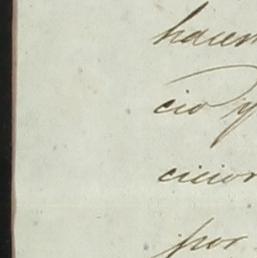 hacien
cio y
cicion
por